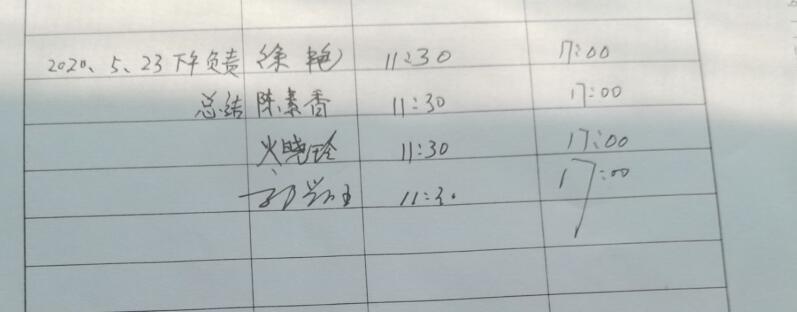 2020、5、23 下午负责 徐艳 11:30 17:00
总结 陈素香 11:30 17:00
火晓玲 11:30 17:00
11:30 17:00